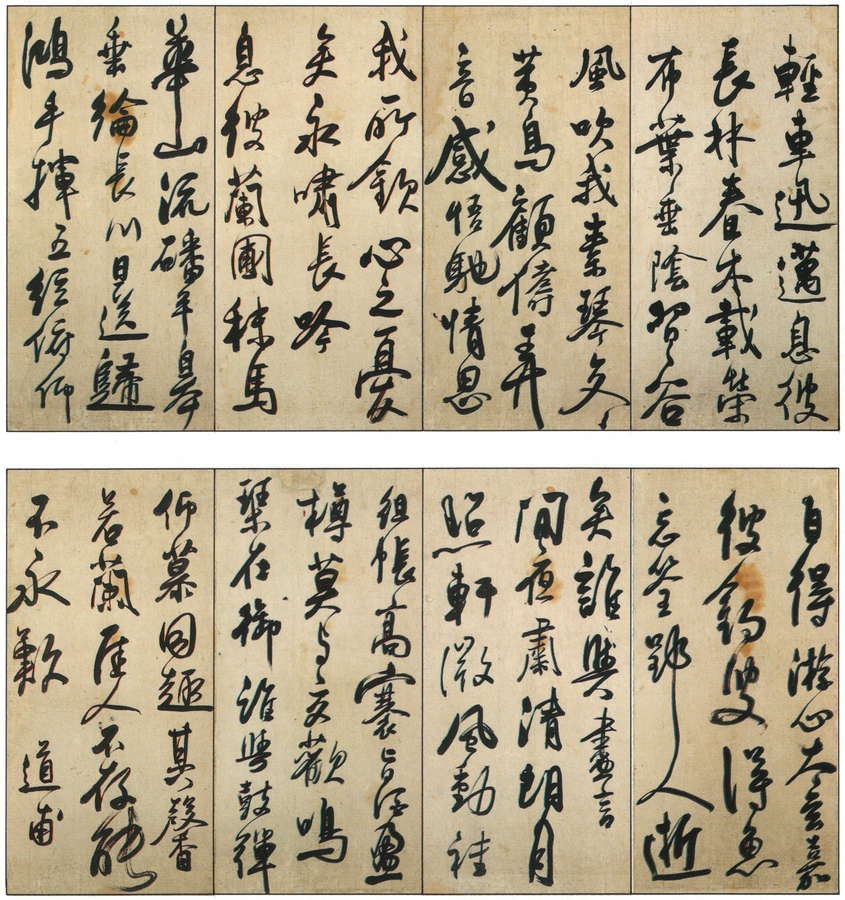 輕車迅邁息彼
長林春木載榮
布葉垂陰習々谷
風吹我素琴交々
黃鳥顧儔弄
音感悟馳情思
我所欽心之憂
矣永嘯長吟
息彼蘭圃秣馬
華山流磻平皋
垂綸長川目送歸
鴻手揮五絃俯仰
自得游心太玄嘉
彼釣叟得魚
忘筌郢人逝
矣誰與盡言
閒夜肅清朗月
照軒微風動袿
組帳高褰旨酒盈
樽莫与交歡鳴
琴在御誰與鼓彈
仰慕同趣其馨香
若蘭佳人不存能
不永歎 道甫